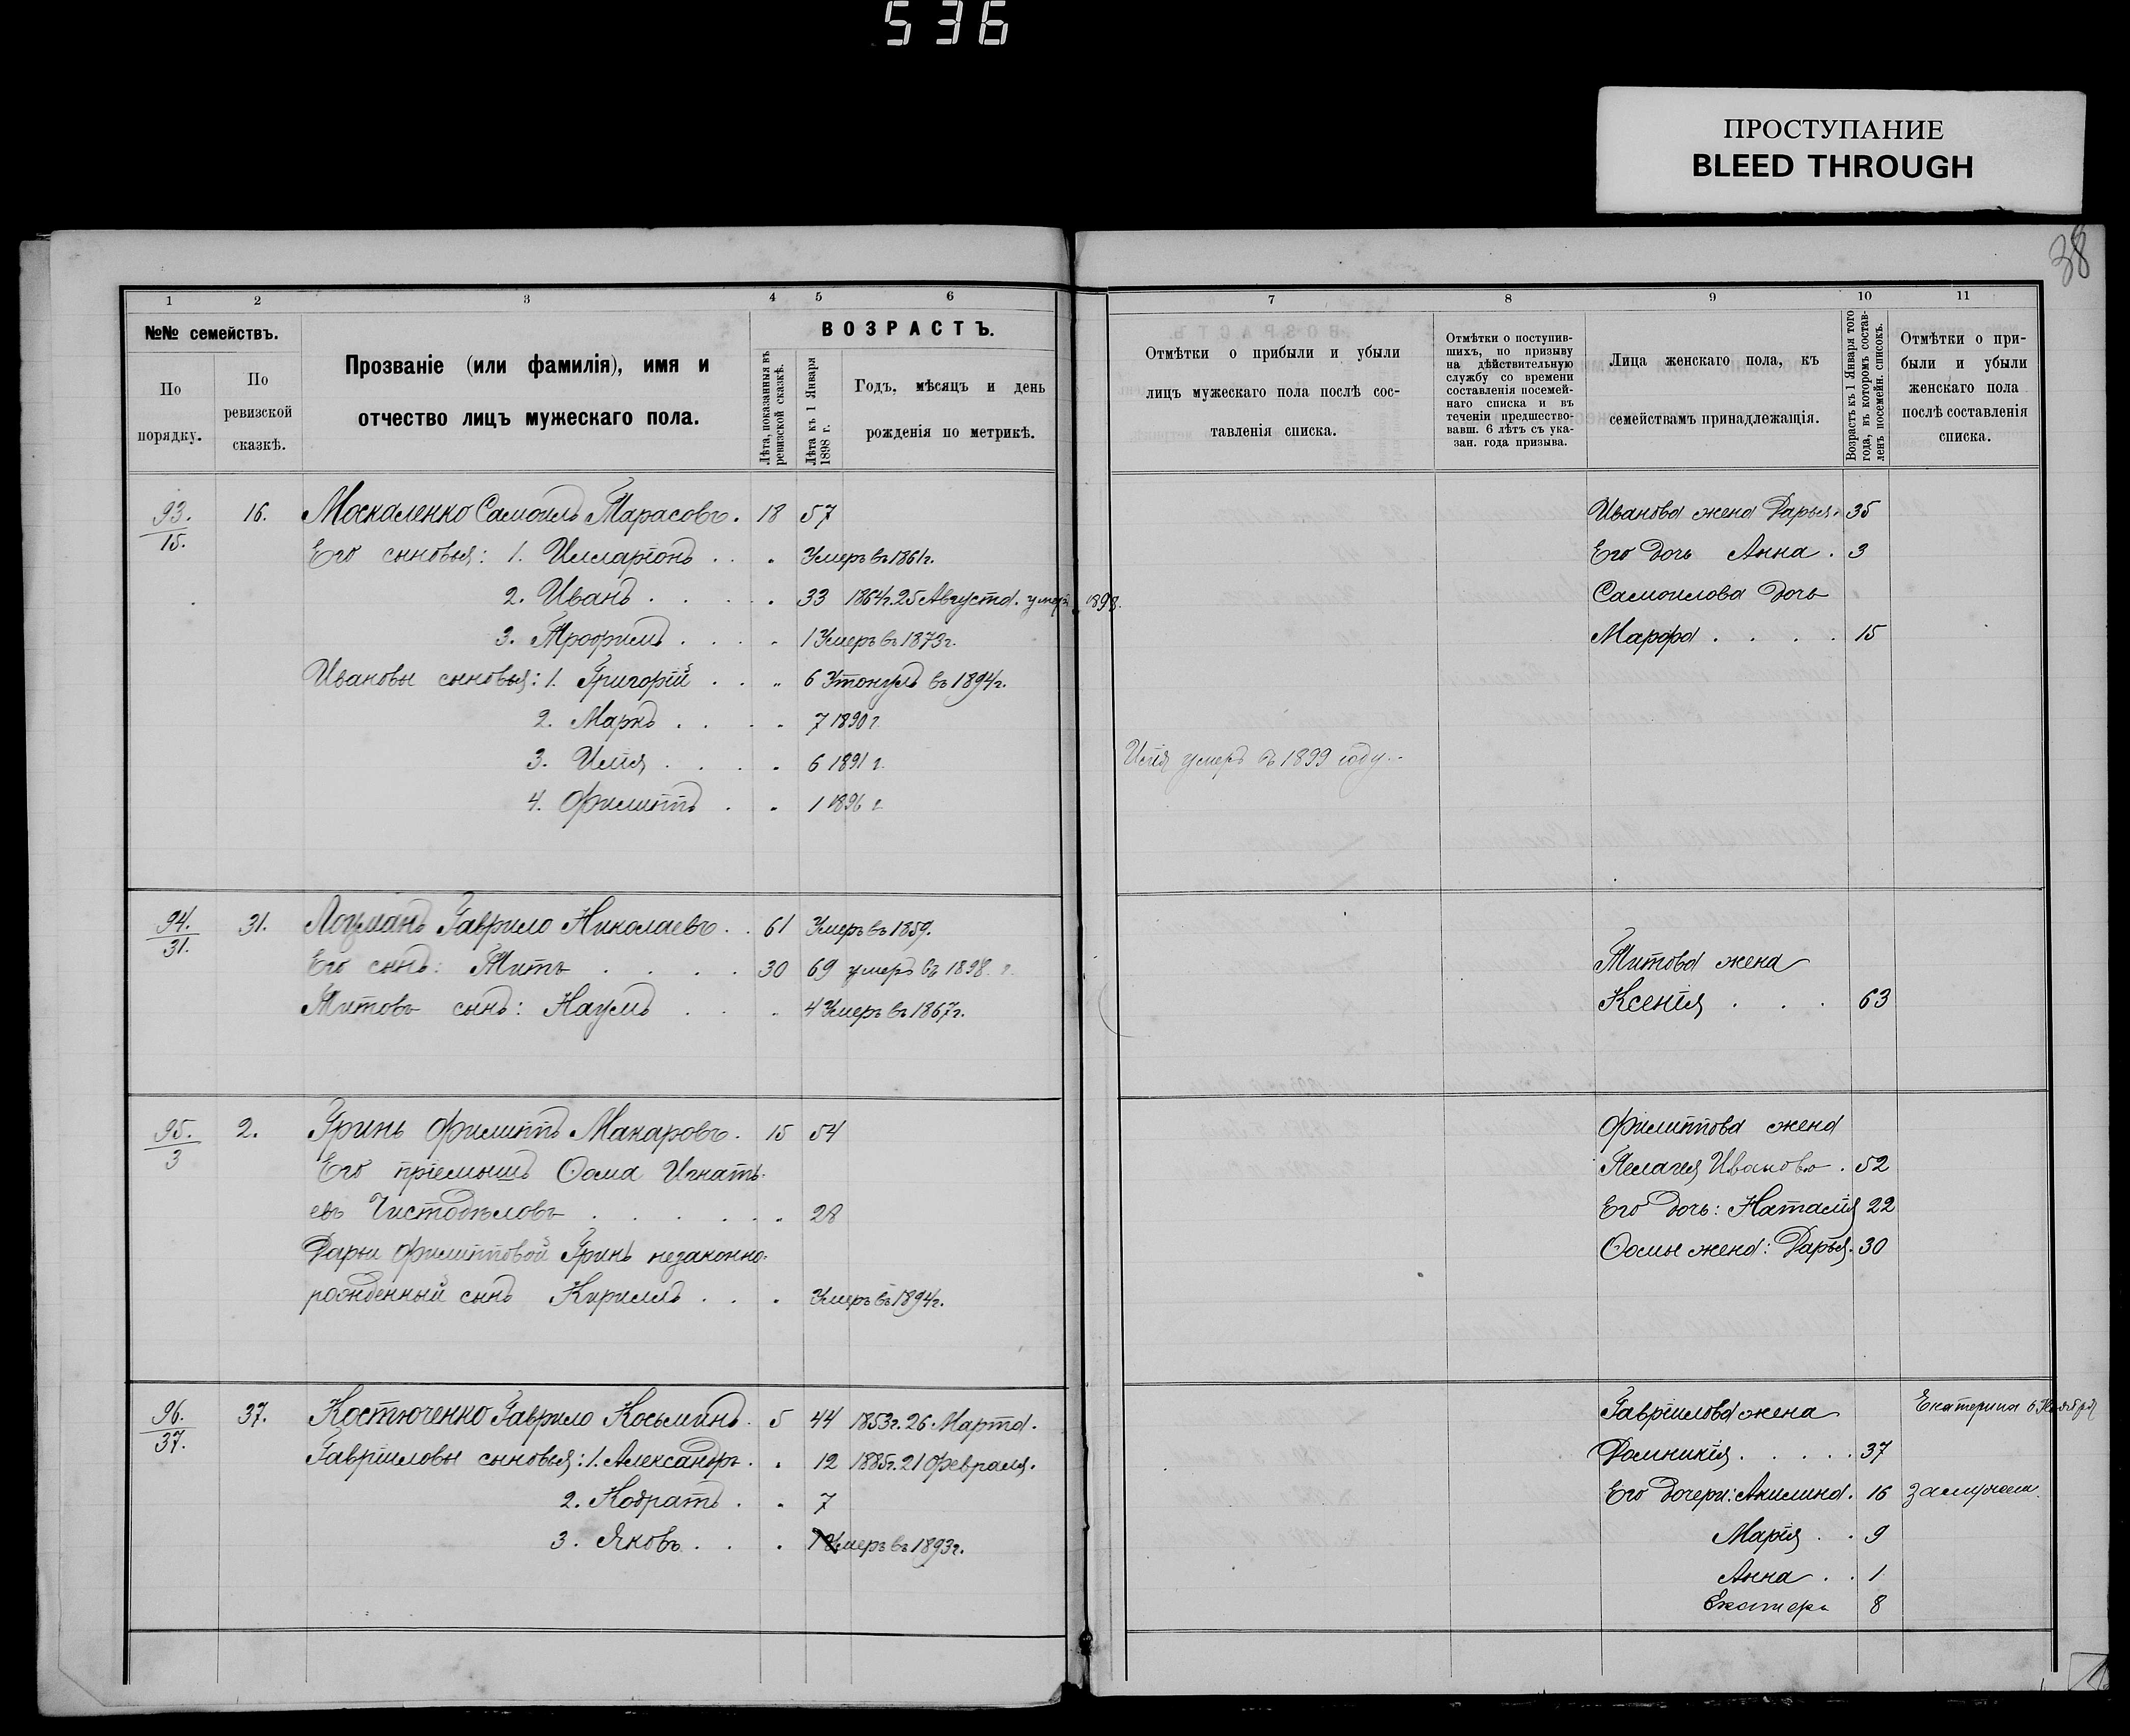 536
ПРОСТУПАНИЕ
BLEED THROUGH
38
1 2 3 4 5 6
№№ семействъ.
По порядку.
По ревизской сказкѣ.
Прозваніе (или фамилія), имя и
отчество лицъ мужескаго пола.
ВОЗРАСТЪ.
Лѣта, показанныя въ ревизской сказкѣ.
Лѣта къ 1 Января 1898 г.
Годъ, мѣсяцъ и день
рожденія по метрикѣ.
93. 15. 16. Москаленко Самоилъ Тарасовъ. 18 57
Его сыновья: 1. Илларіонъ . . . Умеръ въ 1861 г.
2. Иванъ . . . . 33 1864 г. 25 Августа. умеръ 1898.
3. Трофимъ . . . . 1 Умеръ въ 1873 г.
Ивановы сыновья: 1. Григорій . . . 6 Утонулъ въ 1894 г.
2. Маркъ . . . . 7 1890 г.
3. Илія . . . . 6 1891 г.
4. Филиппъ . . 1 1896 г.
94. 31. 31. Лоцманъ Гаврило Николаевъ . . 61 Умеръ въ 1859.
Его сынъ: Титъ . . . . 30 69 умеръ въ 1898 г.
Титовъ сынъ: Наумъ . . . 4 Умеръ въ 1867 г.
95. 3 2. Гринь Филиппъ Макаровъ. 15 54
Его пріемышъ Ѳома Игнать-
евъ Чистодѣловъ . . . . . . 28
Дарьи Филипповой Гринь незаконно-
рожденный сынъ Кириллъ . . . Умеръ въ 1894 г.
96. 37. 37. Костюченко Гаврило Косьминъ. 5 44 1853 г. 26 Марта.
Гавріиловы сыновья: 1. Александръ . . 12 1885 г. 21 Февраля.
2. Кодратъ . . 7
3. Яковъ . . . Умеръ въ 1893 г.
7 8 9 10 11
Отмѣтки о прибыли и убыли
лицъ мужескаго пола послѣ сос-
тавленія списка.
Отмѣтки о поступив-
шихъ, по призыву
на дѣйствительную
службу со времени
составленія посемей-
наго списка и въ
теченіи предшество-
вавш. 6 лѣтъ съ ука-
зан. года призыва.
Лица женскаго пола, къ
семействамъ принадлежащія.
Возрастъ къ 1 Января того
года, въ которомъ состав-
ленъ посемейн. списокъ.
Отмѣтки о при-
были и убыли
женскаго пола
послѣ составленія
списка.
Иванова жена Дарья. 35
Его дочь Анна . 3
Самоилова дочь
Марфа . . . . 15
Илія умеръ въ 1899 году.
Титова жена
Ксенія . . . 63
Филиппова жена
Пелагея Иванова . 52
Его дочь: Наталія 22
Ѳомы жена: Дарья. 30
Гавріилова жена Екатерина 6 Ноября
Домникія . . . . . 37
Его дочери: Акилина. 16 замужем
Марія . . 9
Анна . . 1
Екатери 8